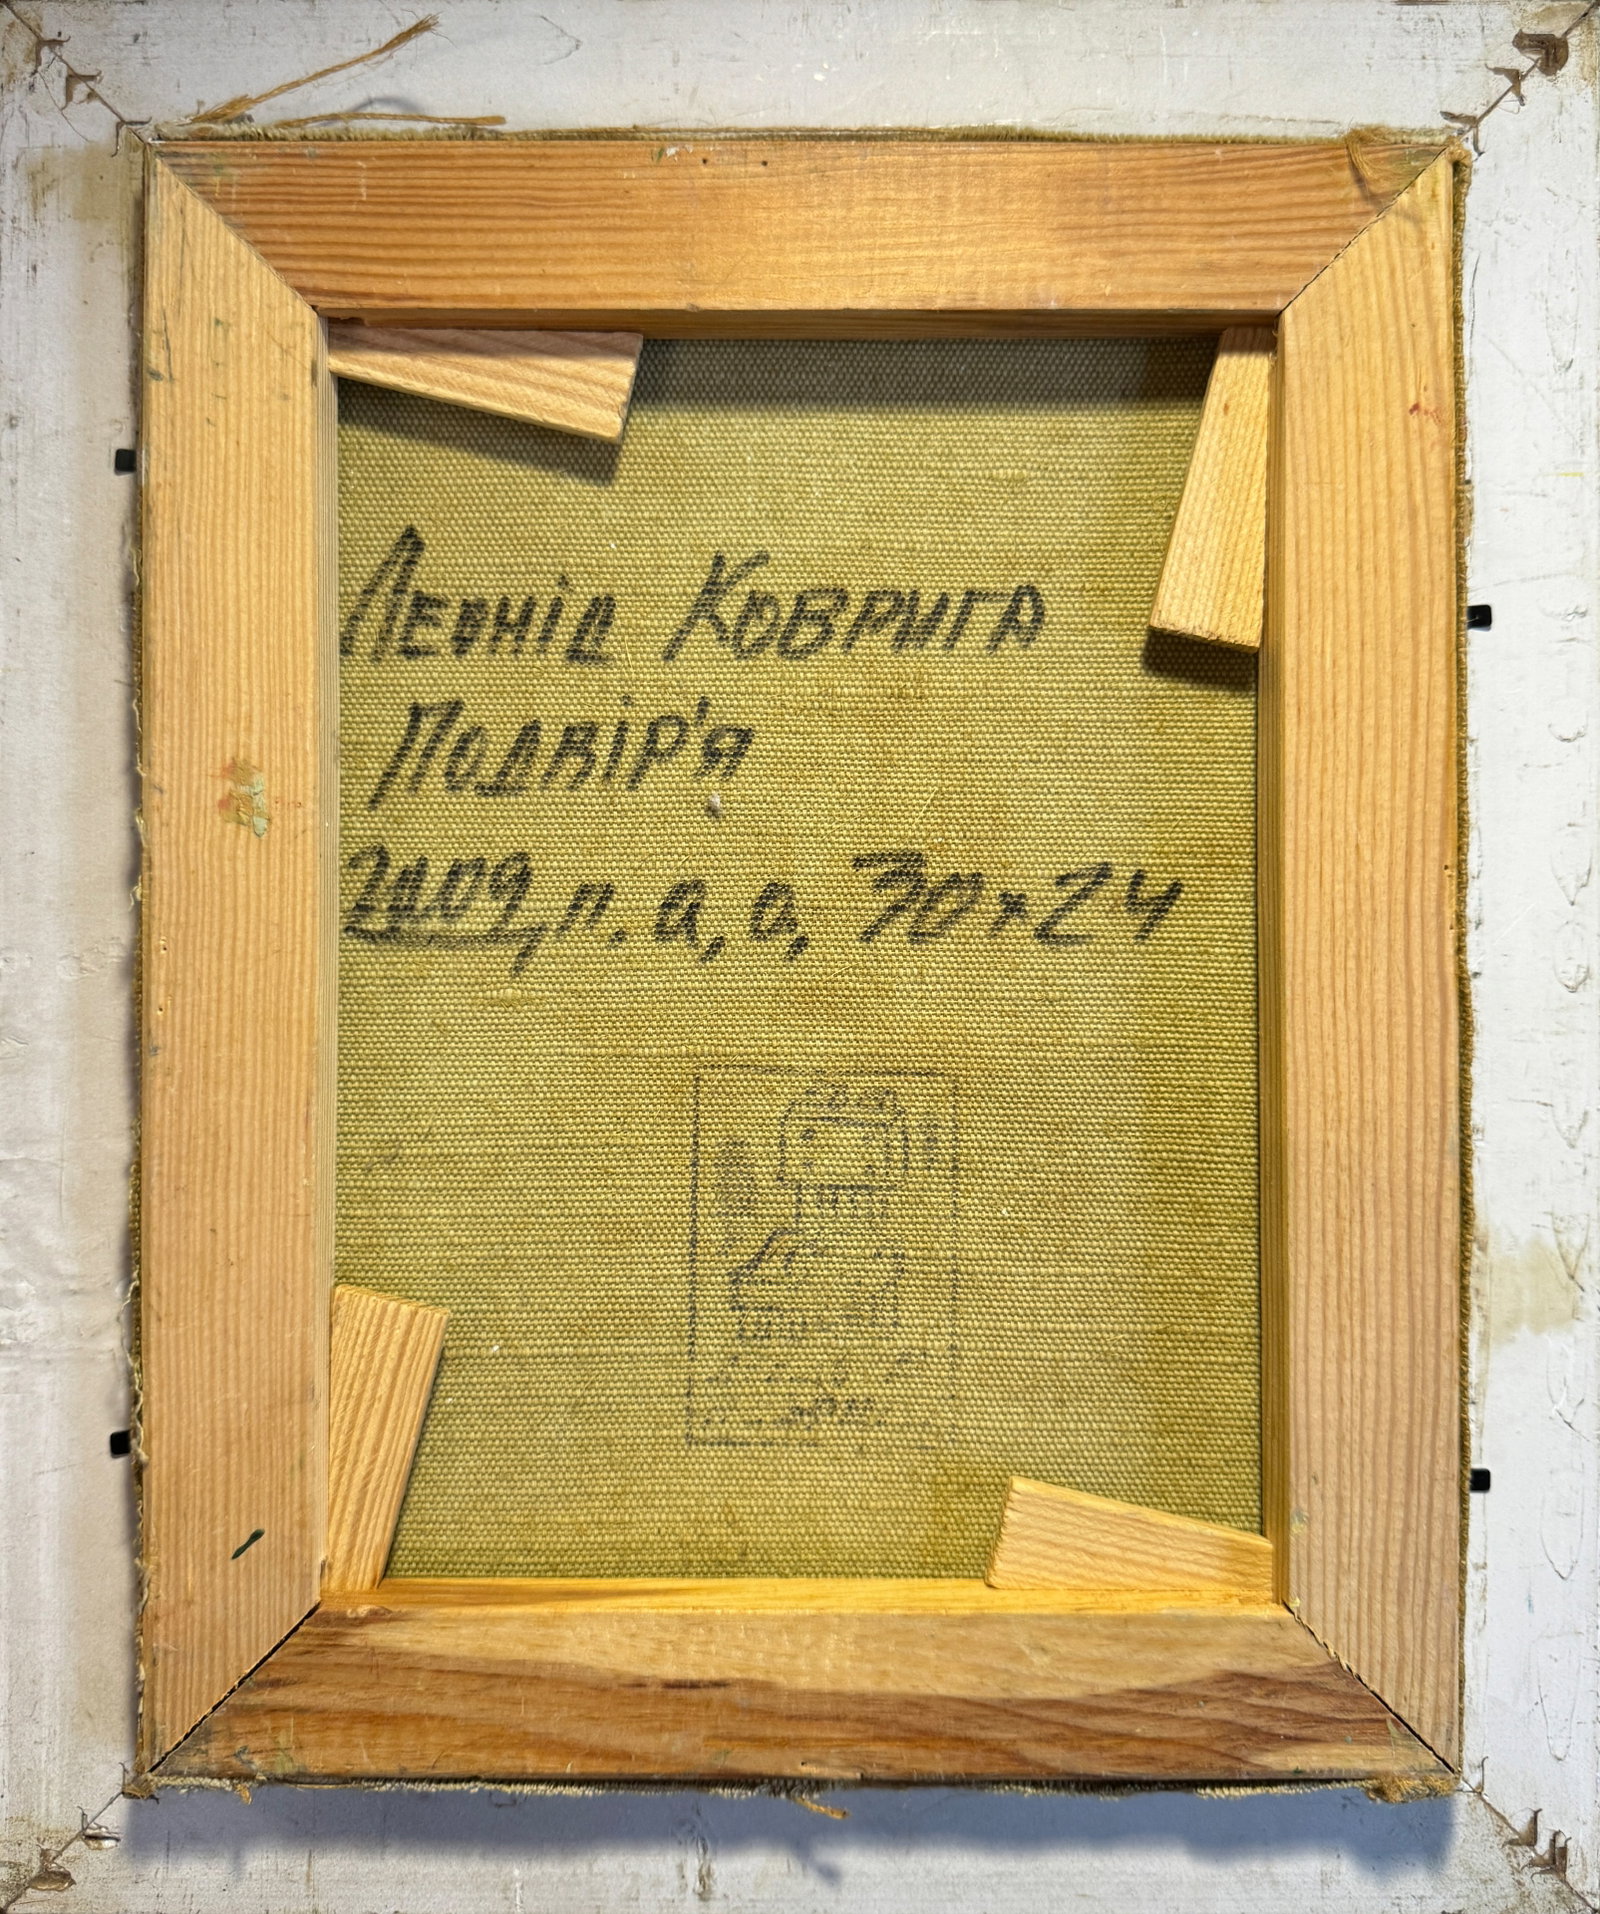 Леонід Коврига
Подвір'я
2009, п. а, о, 30×24